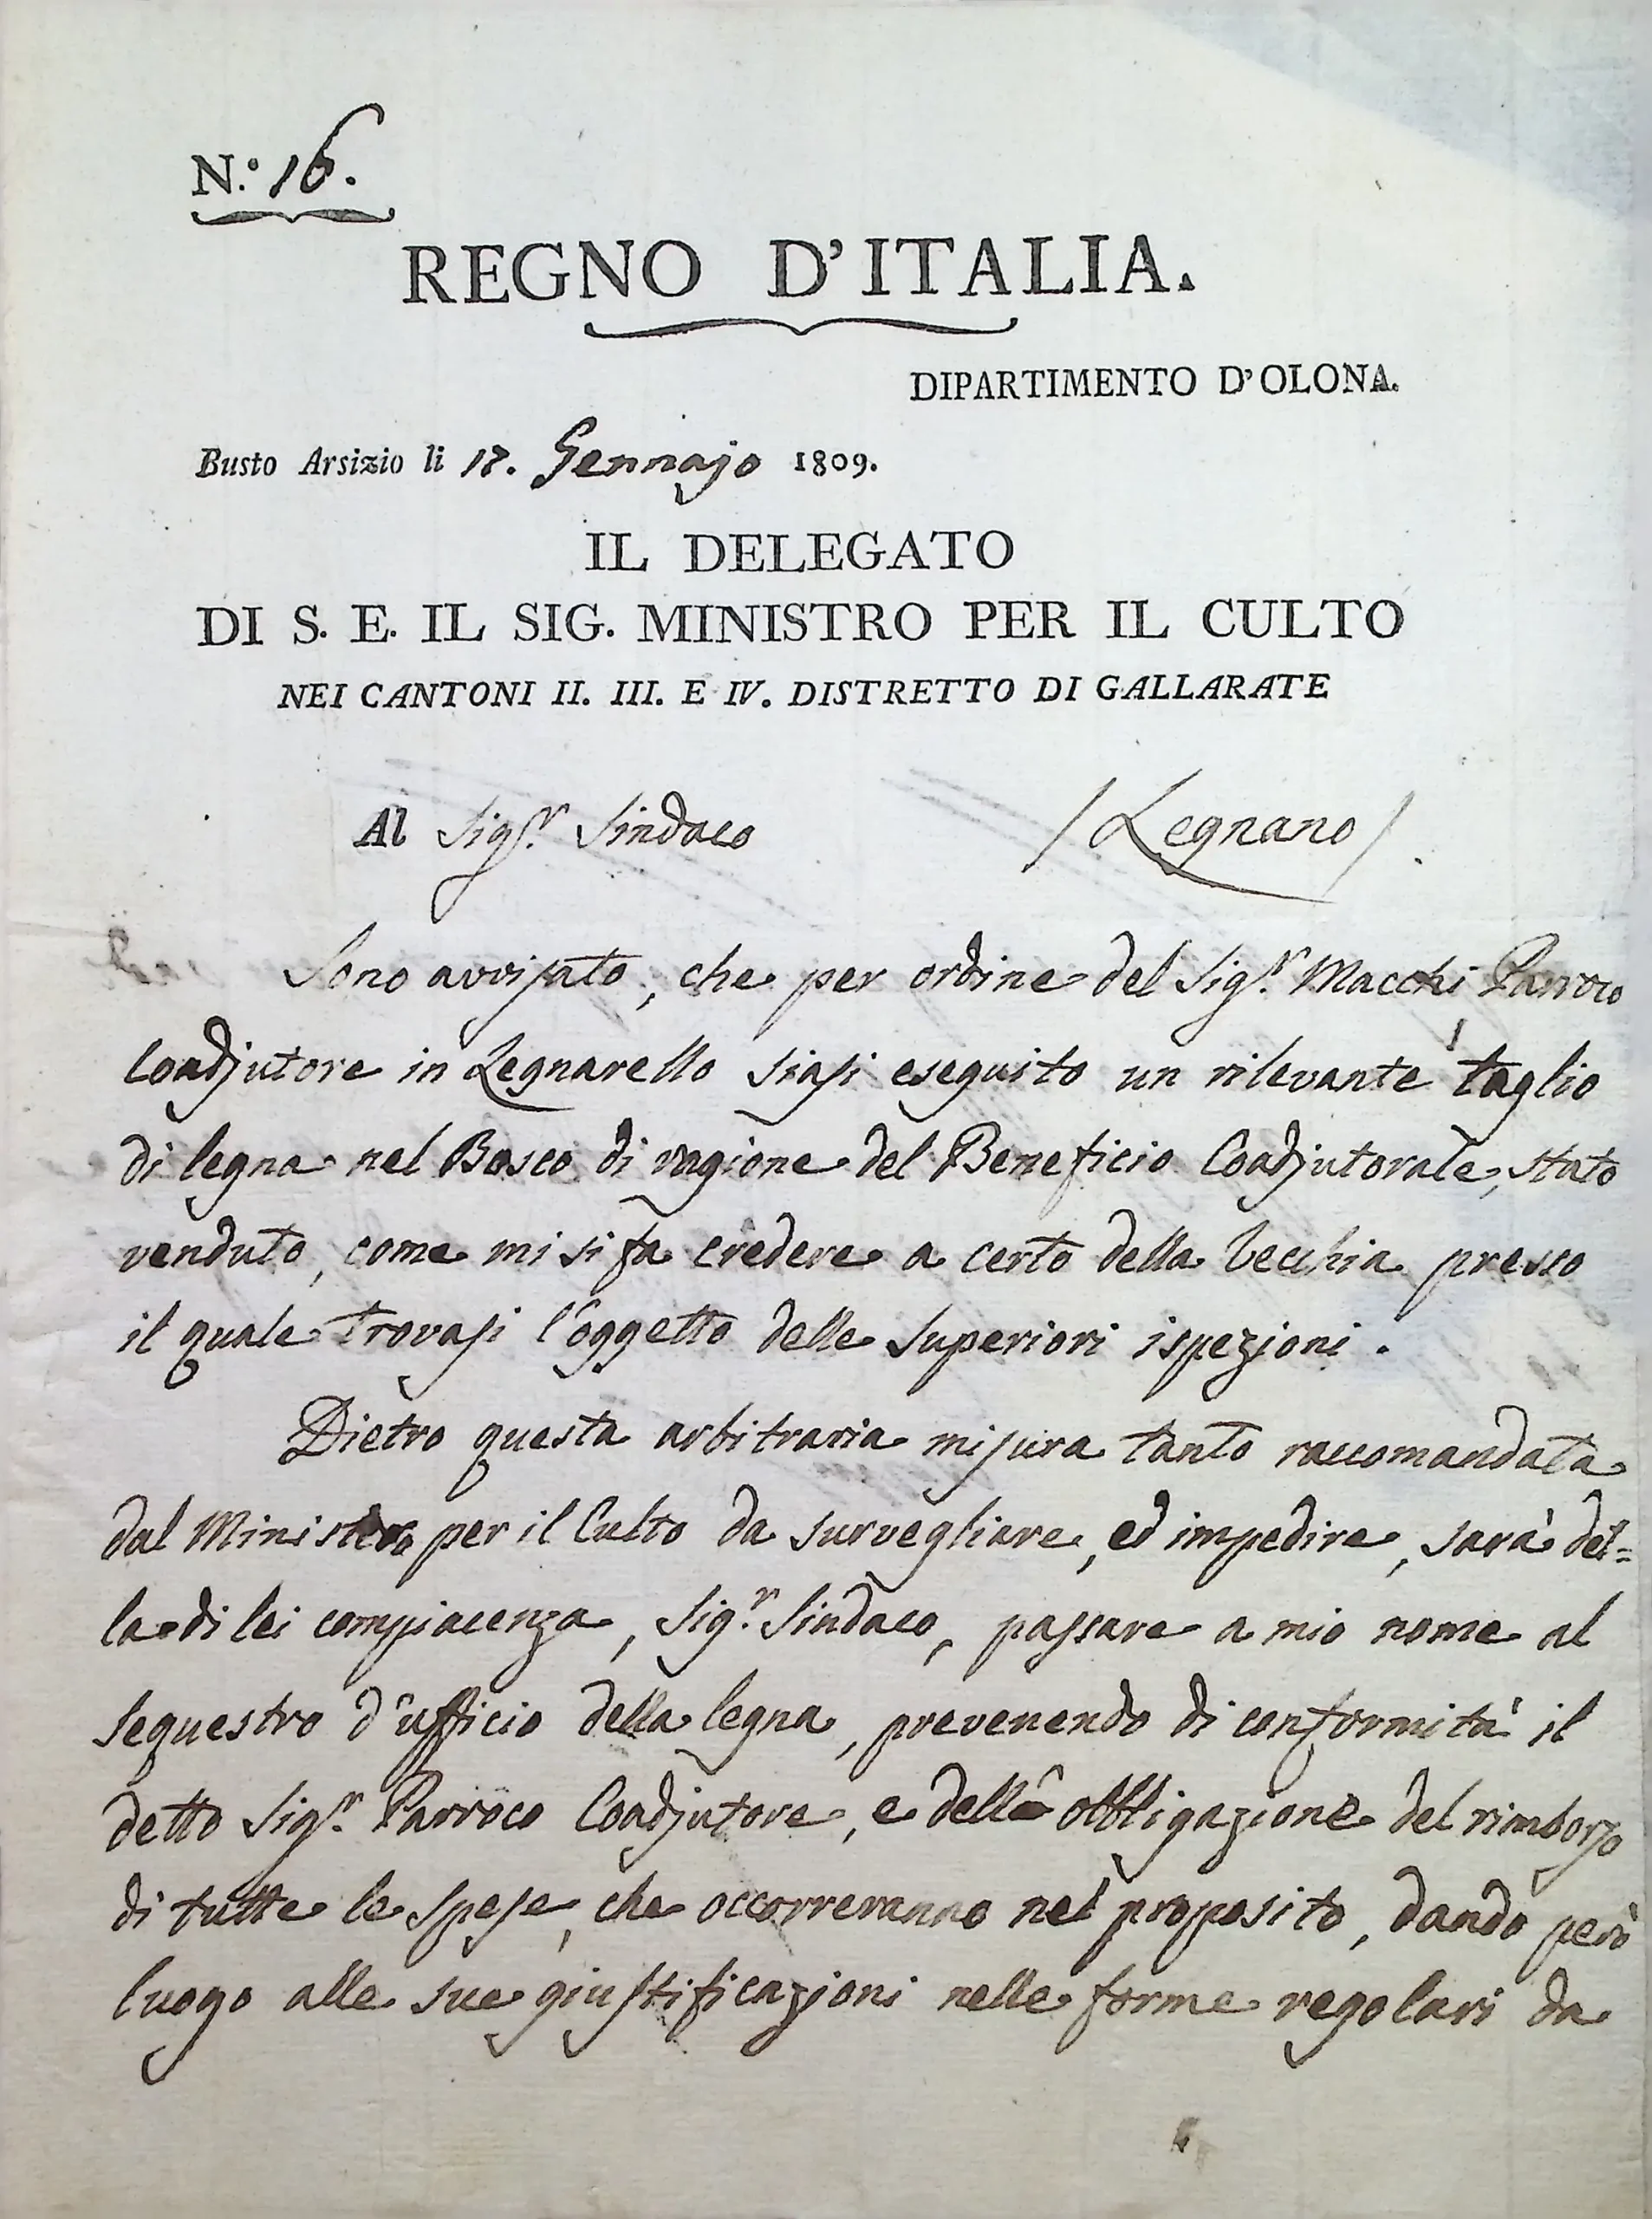 N.º 16.
REGNO D'ITALIA.
DIPARTIMENTO D'OLONA.
Busto Arsizio li 17. Gennajo 1809.
IL DELEGATO
DI S. E. IL SIG. MINISTRO PER IL CULTO
NEI CANTONI II. III. E IV. DISTRETTO DI GALLARATE
Al Sigr. Sindaco /Legnano/.
Sono avvisato, che per ordine del Sigr. Macchi Parroco
Coadjutore in Legnarello siasi eseguito un rilevante taglio
di legna nel Bosco di ragione del Beneficio Coadjutorale, stato
venduto, come mi si fa credere a certo della Vecchia presso
il quale trovasi l'oggetto delle superiori ispezioni.
Dietro questa arbitraria misura tanto raccomandata
dal Ministero per il Culto da survegliare, ed impedire, sarà del=
la di lei compiacenza, Sigr. Sindaco, passare a mio nome al
sequestro d'ufficio della legna, prevenendo di conformità il
detto Sigr. Parroco Coadjutore, e dell' obbligazione del rimborso
di tutte le spese, che occorreranno nel proposito, dando però
luogo alle sue giustificazioni nelle forme regolari da